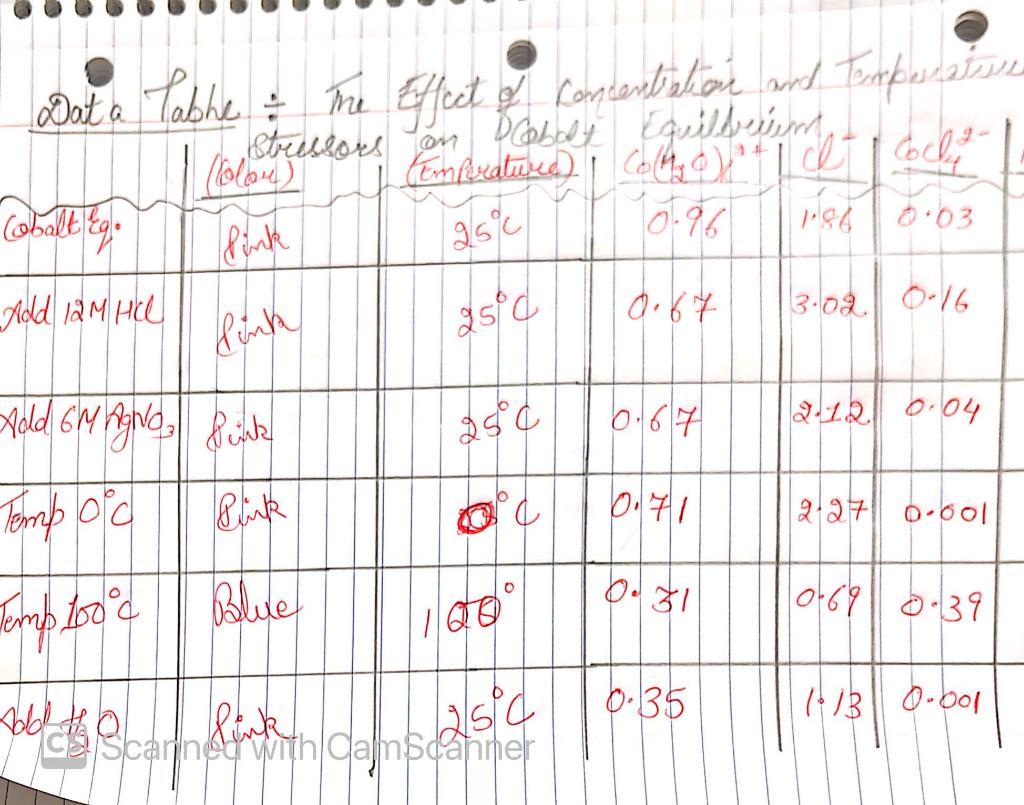 Data Table ÷ The Effect of Concentration and Temperature
Stressors on Equilibrium
(Colour) (Temperature) Co(H2O)6 2+ Cl- CoCl4 2-
Cobalt Eq. Pink 25°C 0.96 1.86 0.03
Add 12M HCl Pink 25°C 0.67 3.02 0.16
Add 6M AgNO3 Pink 25°C 0.67 2.12 0.04
Temp 0°C Pink 0°C 0.71 2.27 0.001
Temp 100°C Blue 100° 0.31 0.69 0.39
Add H2O Pink 25°C 0.35 1.13 0.001
CS Scanned with CamScanner